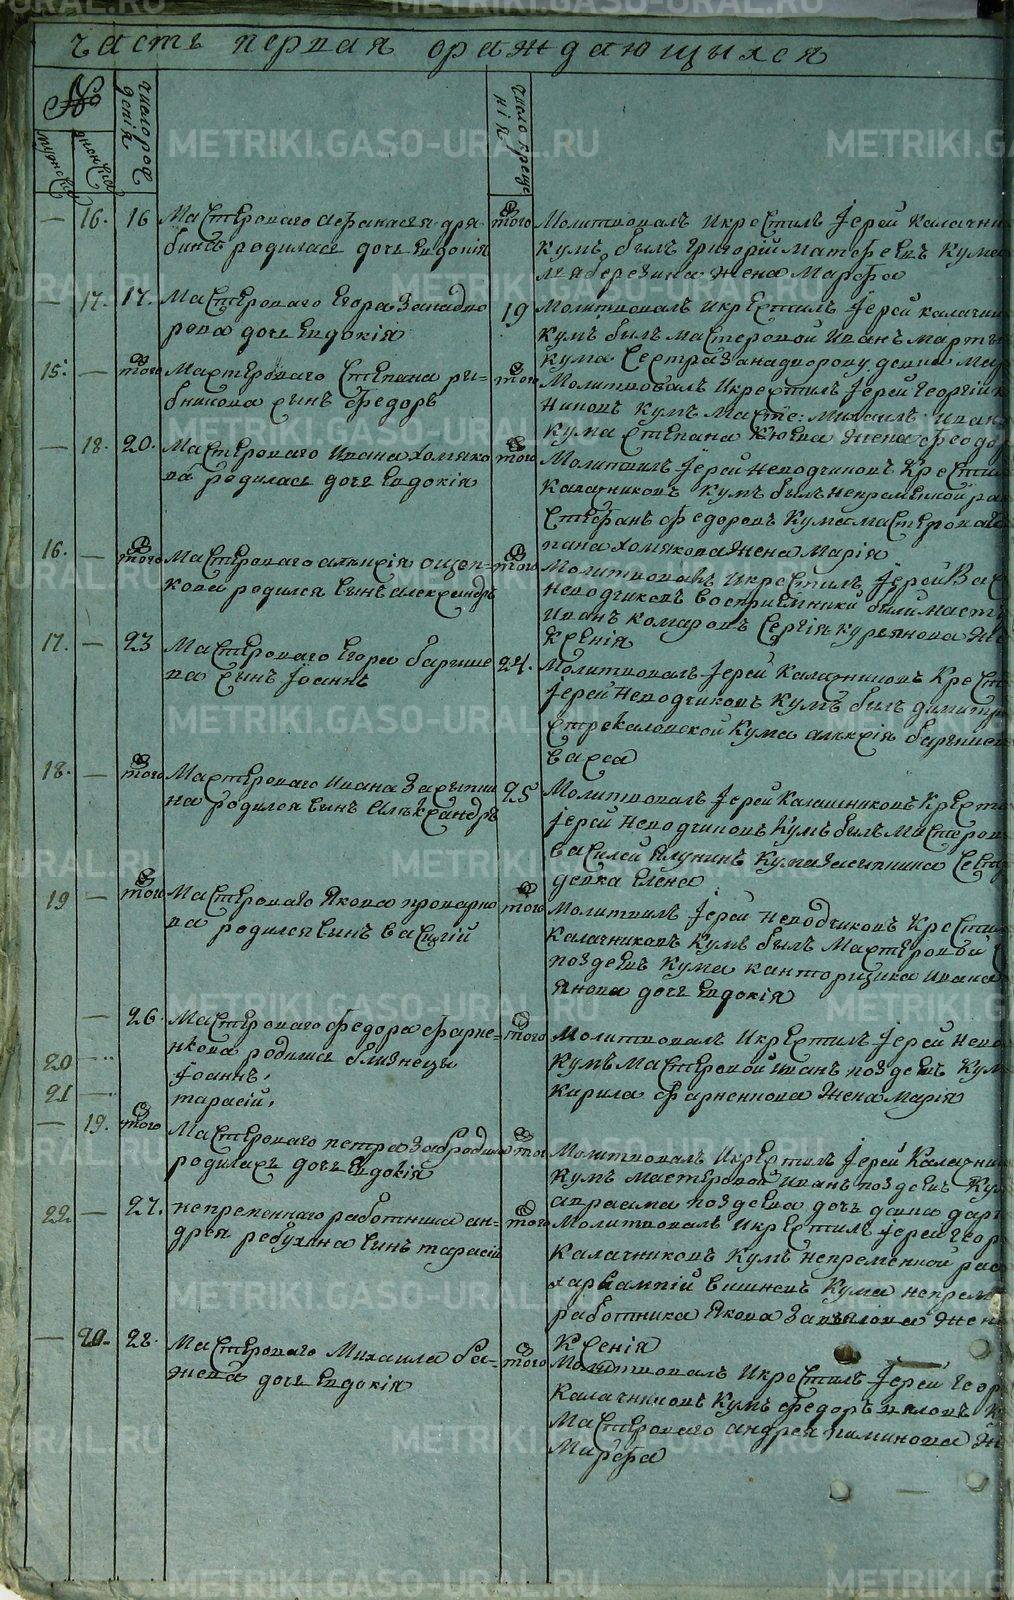 часть первая ораждающихся
№
число рождения
число крещения
мужска
женска
— 16. 16 Мастероваго Афанасья Дря-
бина родилась дочь Евдокія
того Молитвовалъ и крестилъ Іерей Калачни
кумъ былъ Григорій Матфеевъ кума
Березина жена Марфа
— 17. 17. Мастероваго Егора Занадво
рова дочь Евдокія
19 Молитвовалъ и крестилъ Іерей Калачни
кумъ былъ мастеровой Иванъ Марты
кума сестра Занадворову девка Мар
15. — того Мастероваго Степана Ры-
бникова сынъ Федоръ
того Молитвовалъ и крестилъ Іерей Георгій
кумъ Масте: Михаилъ Иван
кума Степана жена Феодо
— 18. 20. Мастероваго Ивана Хомяко
ва родилась дочь Евдокія
того Молитвилъ Іерей Неводчиковъ крести
Калачниковъ кумъ былъ непременной ра
Стефанъ Федоровъ кума мастероваго
пана Хомякова жена Марія
16. — того Мастероваго
кова родился сынъ Александръ
того Молитвовалъ и крестилъ Іерей Вас
Неводчиковъ восприемники были маст
Иванъ Комаровъ Сергія Курьянова же
Ксенія
17. — 23 Мастероваго Егора Барыше
ва сынъ Іоаннъ
24. Молитвовалъ Іерей Калачниковъ крест
Іерей Неводчиковъ кумъ былъ Димитр
Стрекаловской кума Барыше
Васса
18. — того Мастероваго Ивана Засыпки
на родился сынъ Александръ
25 Молитвовалъ Іерей Калашниковъ крест
Іерей Неводчиковъ кумъ былъ мастеров
Василей Ялунинъ кума Засыпкина сест
девка Елена
19 — того Мастероваго Якова
ва родился сынъ Василій
того Молитвилъ Іерей Неводчиковъ крести
Калачниковъ кумъ былъ мастеровой
Поздеевъ кума канторщика Ивана
Янова дочь Евдокія
— 26. Мастероваго Федора Фарне-
нкова родились близнецы
20 — Іоаннъ,
21 — тарасій,
того Молитвовалъ и крестилъ Іерей Нево
кумъ мастеровой Иванъ Поздеевъ кум
Кирила Фарненкова жена Марія
— 19. того Мастероваго Петра Забродина
родилась дочь Евдокія
того Молитвовалъ и крестилъ Іерей Калачни
кумъ мастеровой Иванъ Поздеевъ ку
Авраама Поздеева дочь девка Дар
22 — 27. непременнаго работника Ан-
дрея Ребухина сынъ Тарасій
того Молитвовалъ и крестилъ Іерей Геор
Калачниковъ кумъ непременной раб
Харлампій Вишневъ кума непрем
работника Якова Завьялова жен
Ксенія
— 20. 28. Мастероваго Михаила Ба-
жева дочь Евдокія
того Молитвовалъ и крестилъ Іерей Геор
Калачниковъ кумъ Федоръ
Мастероваго Андрея Пиминова Ж
Марфа
METRIKI.GASO-URAL.RU